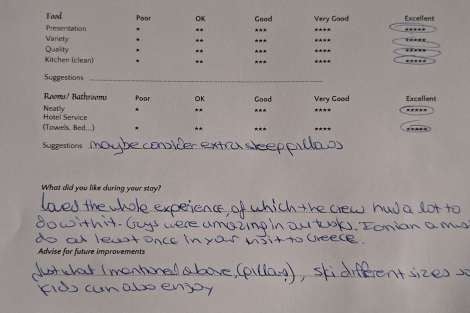 Food Poor OK Good Very Good Excellent
Presentation * ** *** **** *****
Variety * ** *** **** *****
Quality * ** *** **** *****
Kitchen (clean) * ** *** **** *****
Suggestions
Rooms/ Bathrooms Poor OK Good Very Good Excellent
Neatly * ** *** **** *****
Hotel Service
(Towels, Bed...) * ** *** **** *****
Suggestions maybe consider extra sleep pillows
What did you like during your stay?
Loved the whole experience, of which the crew had a lot to
do with it. Guys were amazing in all tasks. Ionian a mus
do at least once in your visit to Greece.
Advise for future improvements
Just what I mentioned above, , ski different sizes so
kids can also enjoy